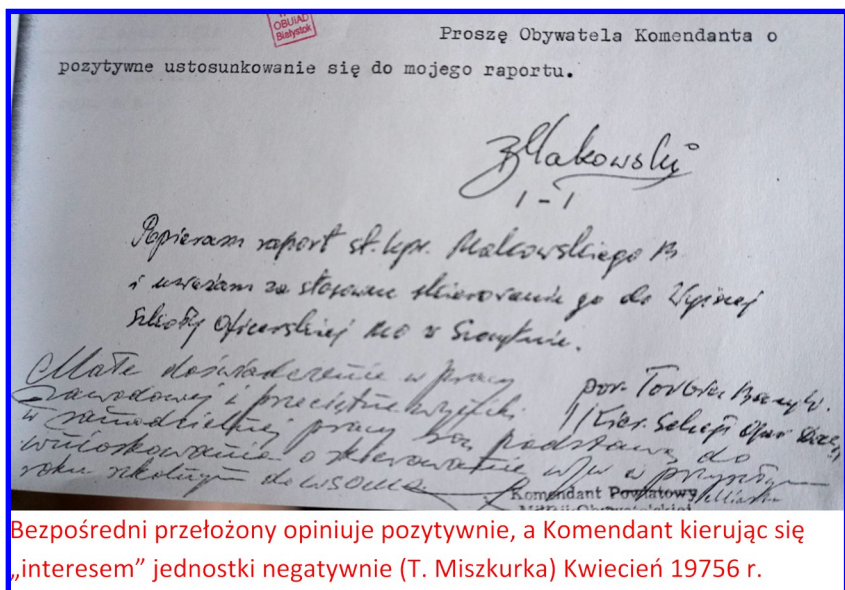 OBUiAD
Białystok
Proszę Obywatela Komendanta o
pozytywne ustosunkowanie się do mojego raportu.
BMakowski
1-1
Popieram raport st. kpr. Makowskiego B
i uważam za stosowne skierowanie go do Wyższej
Szkoły Oficerskiej MO w Szczytnie.
Małe doświadczenie w pracy
zawodowej i przeciętne wyniki
w samodzielnej pracy są podstawą do
wnioskowania o skierowanie w/w w przyszłym
roku szkolnym do WSO MO
por.
Kier. Sekcji Oper Docz.
Komendant Powiatowy
Bezpośredni przełożony opiniuje pozytywnie, a Komendant kierując się
„interesem” jednostki negatywnie (T. Miszkurka) Kwiecień 19756 r.